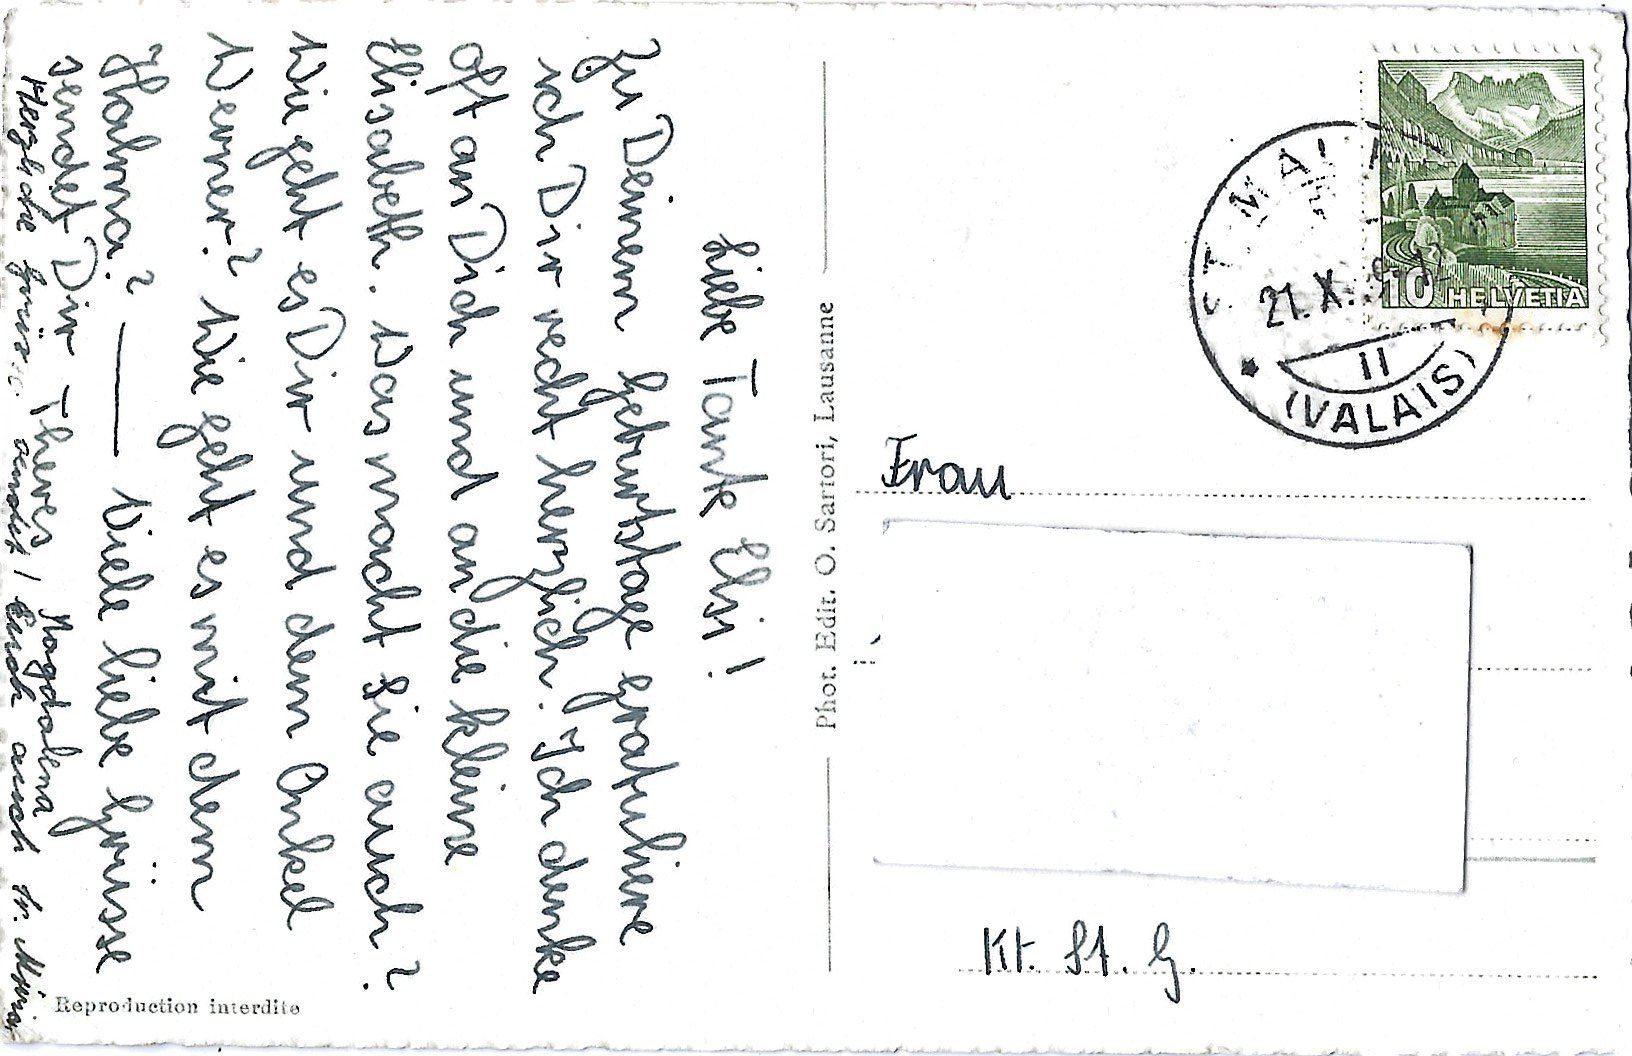 Liebe Tante Elsi!
Zu Deinem Geburtstage gratuliere
ich Dir recht herzlich. Ich denke
oft an Dich und an die kleine
Elisabeth. Was macht sie auch?
Wie geht es Dir und dem Onkel
Werner? Wie geht es mit dem
Halma? — Viele liebe Grüsse
sendet Dir Theres
Magdalena
Herzliche sendet Euch auch Sr.
Reproduction interdite
Phot. Edit. O. Sartori, Lausanne
10 HELVETIA
21.X.
II
(VALAIS)
Frau
Kt. St. G.